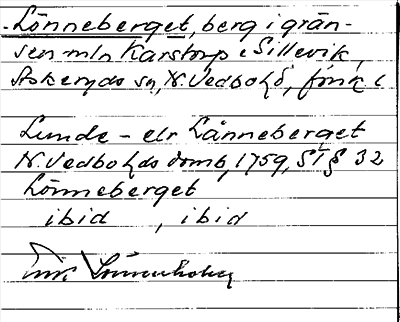 Lönneberget, berg i grän-
sen mln Karstorp o Sillevik,
Askeryds sn, N. Vedbo hd,
Lunde - elr Lånneberget
N. Vedbo hds domb, 1759, ST § 32
Lönneberget
ibid, ibid